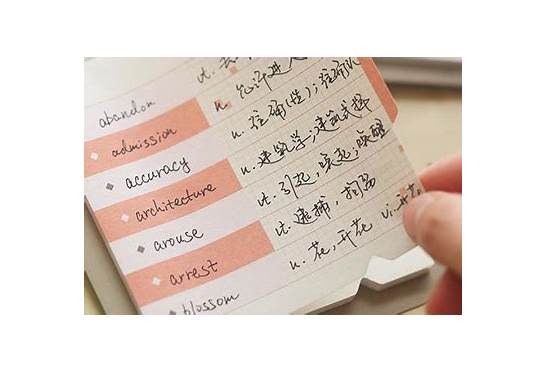 abandon vt.
admission n. 允许进入
accuracy n. 准确(性);准确
architecture n. 建筑学;建筑式样
arouse vt. 引起,唤起;唤醒
arrest vt. 逮捕,
blossom n. 花,开花 vi. 开花